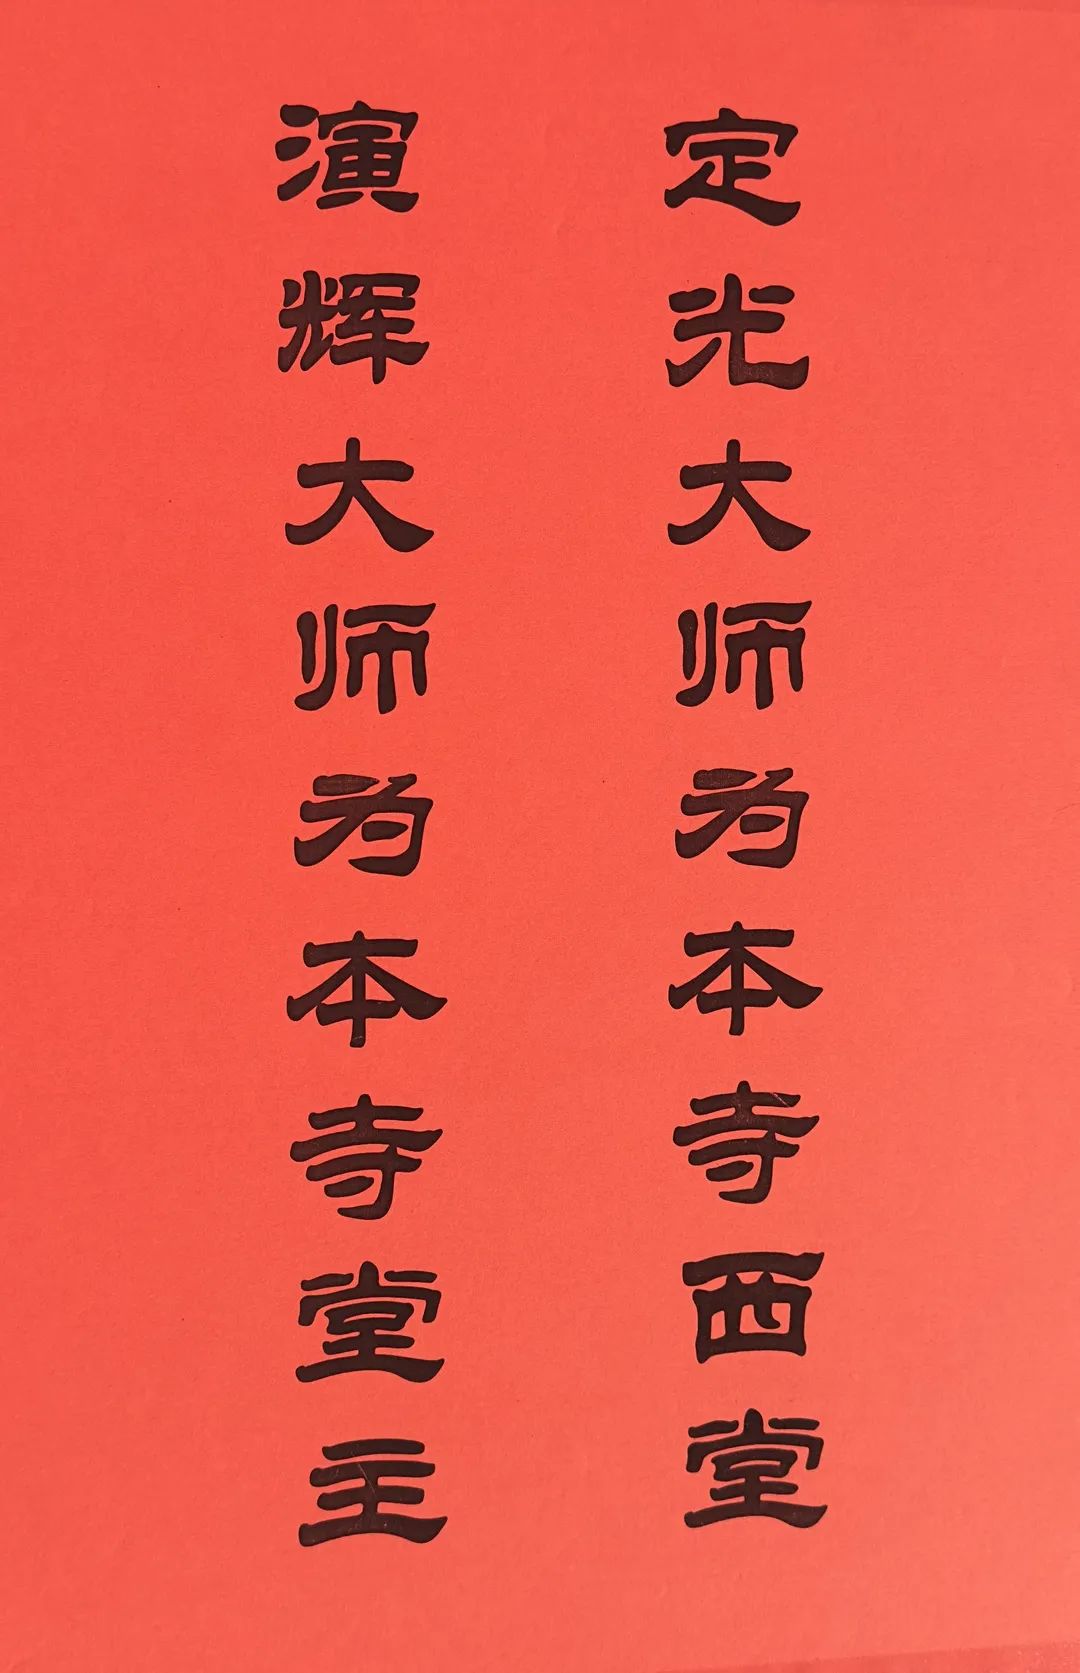 定光大师为本寺西堂
演辉大师为本寺堂主